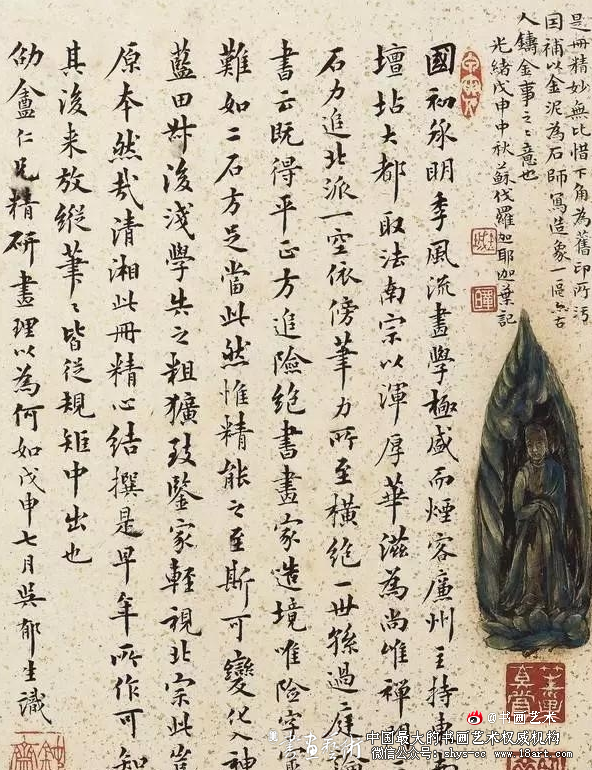 是冊精妙無比惜下角為舊印所污
因補以金泥為石師寫造象一區亦古
人鑄金事之〻意也
光緒戊申中秋蘇伐羅迦耶迦葉記
國初承明季風流畫學極盛而煙客廉州主持東
壇坫大都取法南宗以渾厚華滋為尚惟禪
石力追北派一空依傍筆力所至橫絕一世孫過庭論
書云既得平正方追險絕書畫家造境唯險字
難如二石方足當此然惟精能之至斯可變化入神
藍田叔後淺學失之粗獷致鑒家輕視北宗此豈
原本然哉清湘此冊精心結撰是早年所作可知
其後來放縱筆〻皆從規矩中出也
劬盦仁兄精研畫理以為何如戊申七月吳郁生識
@书画艺术
中国最大的书画艺术权威机构
微信公众号：shys-cc www.18art.com